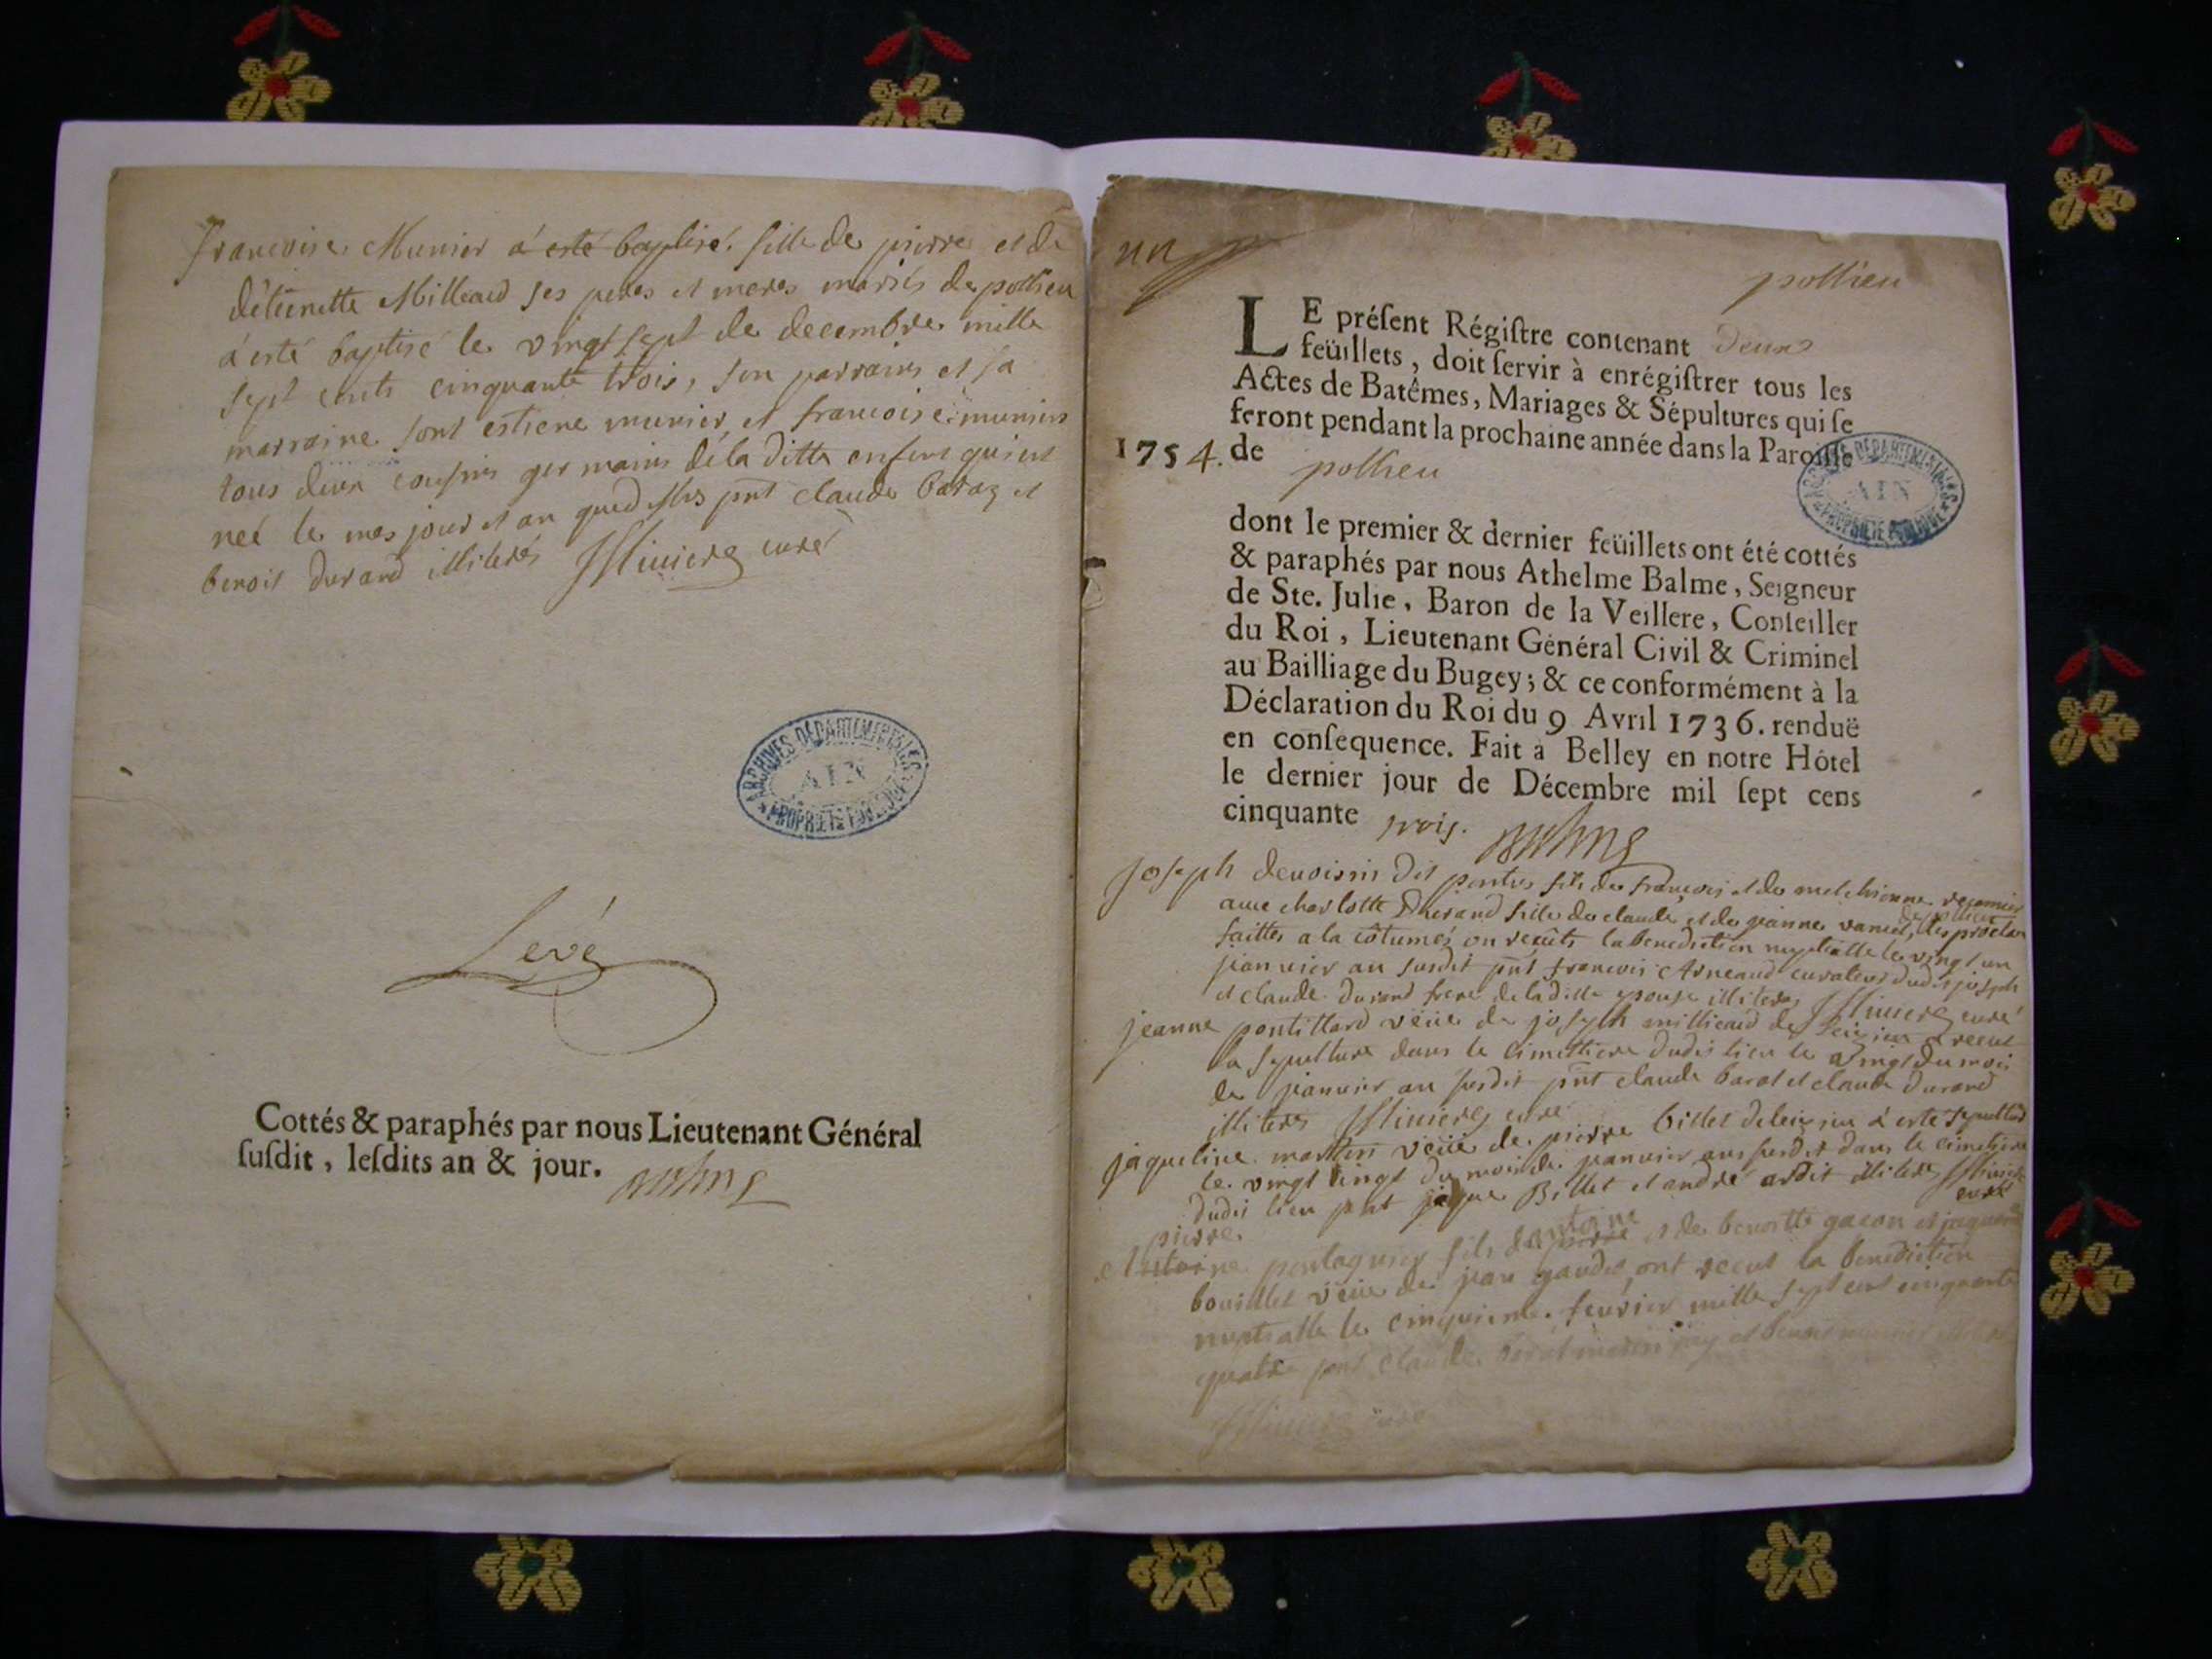 francoise Munier a esté baptisé. fille de pierre et de
détienette Milleand ses peres et meres mariés de pollieu
a esté baptisé le vingt sept de decembre mille
sept cents cinquante trois, son parrains et sa
marraine sont estiene munier et francoise munier
tous deux cousins germains de la ditte enfant qui est
neé le mes jour et an que dessus pnt claude baraz et
benoit durand illiterés Miniere curé
ARCHIVES DÉPARTEMENTALES
AIN
PROPRIÉTÉ PUBLIQUE
Levé
Cottés & paraphés par nous Lieutenant Général
ſuſdit, leſdits an & jour.
un
pollieu
LE préſent Régiſtre contenant deux
feüillets, doit ſervir à enrégiſtrer tous les
Actes de Batêmes, Mariages & Sépultures qui ſe
feront pendant la prochaine année dans la Paroiſſe
1754. de pollieu
ARCHIVES DÉPARTEMENTALES
AIN
PROPRIÉTÉ PUBLIQUE
dont le premier & dernier feüillets ont été cottés
& paraphés par nous Athelme Balme, Seigneur
de Ste. Julie, Baron de la Veillere, Conſeiller
du Roi, Lieutenant Général Civil & Criminel
au Bailliage du Bugey; & ce conformément à la
Déclaration du Roi du 9 Avril 1736. renduë
en conſequence. Fait à Belley en notre Hôtel
le dernier jour de Décembre mil ſept cens
cinquante trois.
joseph devoisin dit fils de francois et de melchionne
avec charlotte Durand fille de claude et de jeanne les proclam
faittes a la côtumés on reçûts la benediction nuptialle le vingt un
janvier an susdit pnt francois Arneand curateur dudit joseph
et claude durand frere de la ditte epouse illiteres Miniere curé
jeanne pontillard veue de joseph millieand de Leizieu a receut
la sepulture dans le cimettiere dudit lieu le vingt du mois
de janvier an susdit pnt claude barat et claude durand
illiteres Miniere curé
jaqueline martin veue de pierre billet de leizieu a esté
le vingt du mois de janvier an susdit dans le cimetiere
dudit lieu pnt jaque Billet et andré ardit illiteres Miniere
curé
pierre
Antoine fils de antoine et de benoitte gacon et
bouillet veue de jean gaudet ont receut la benediction
nuptialle le cinquieme fevrier mille sept cent cinquante
quatre pnt claude barat et benoit munier
Miniere curé